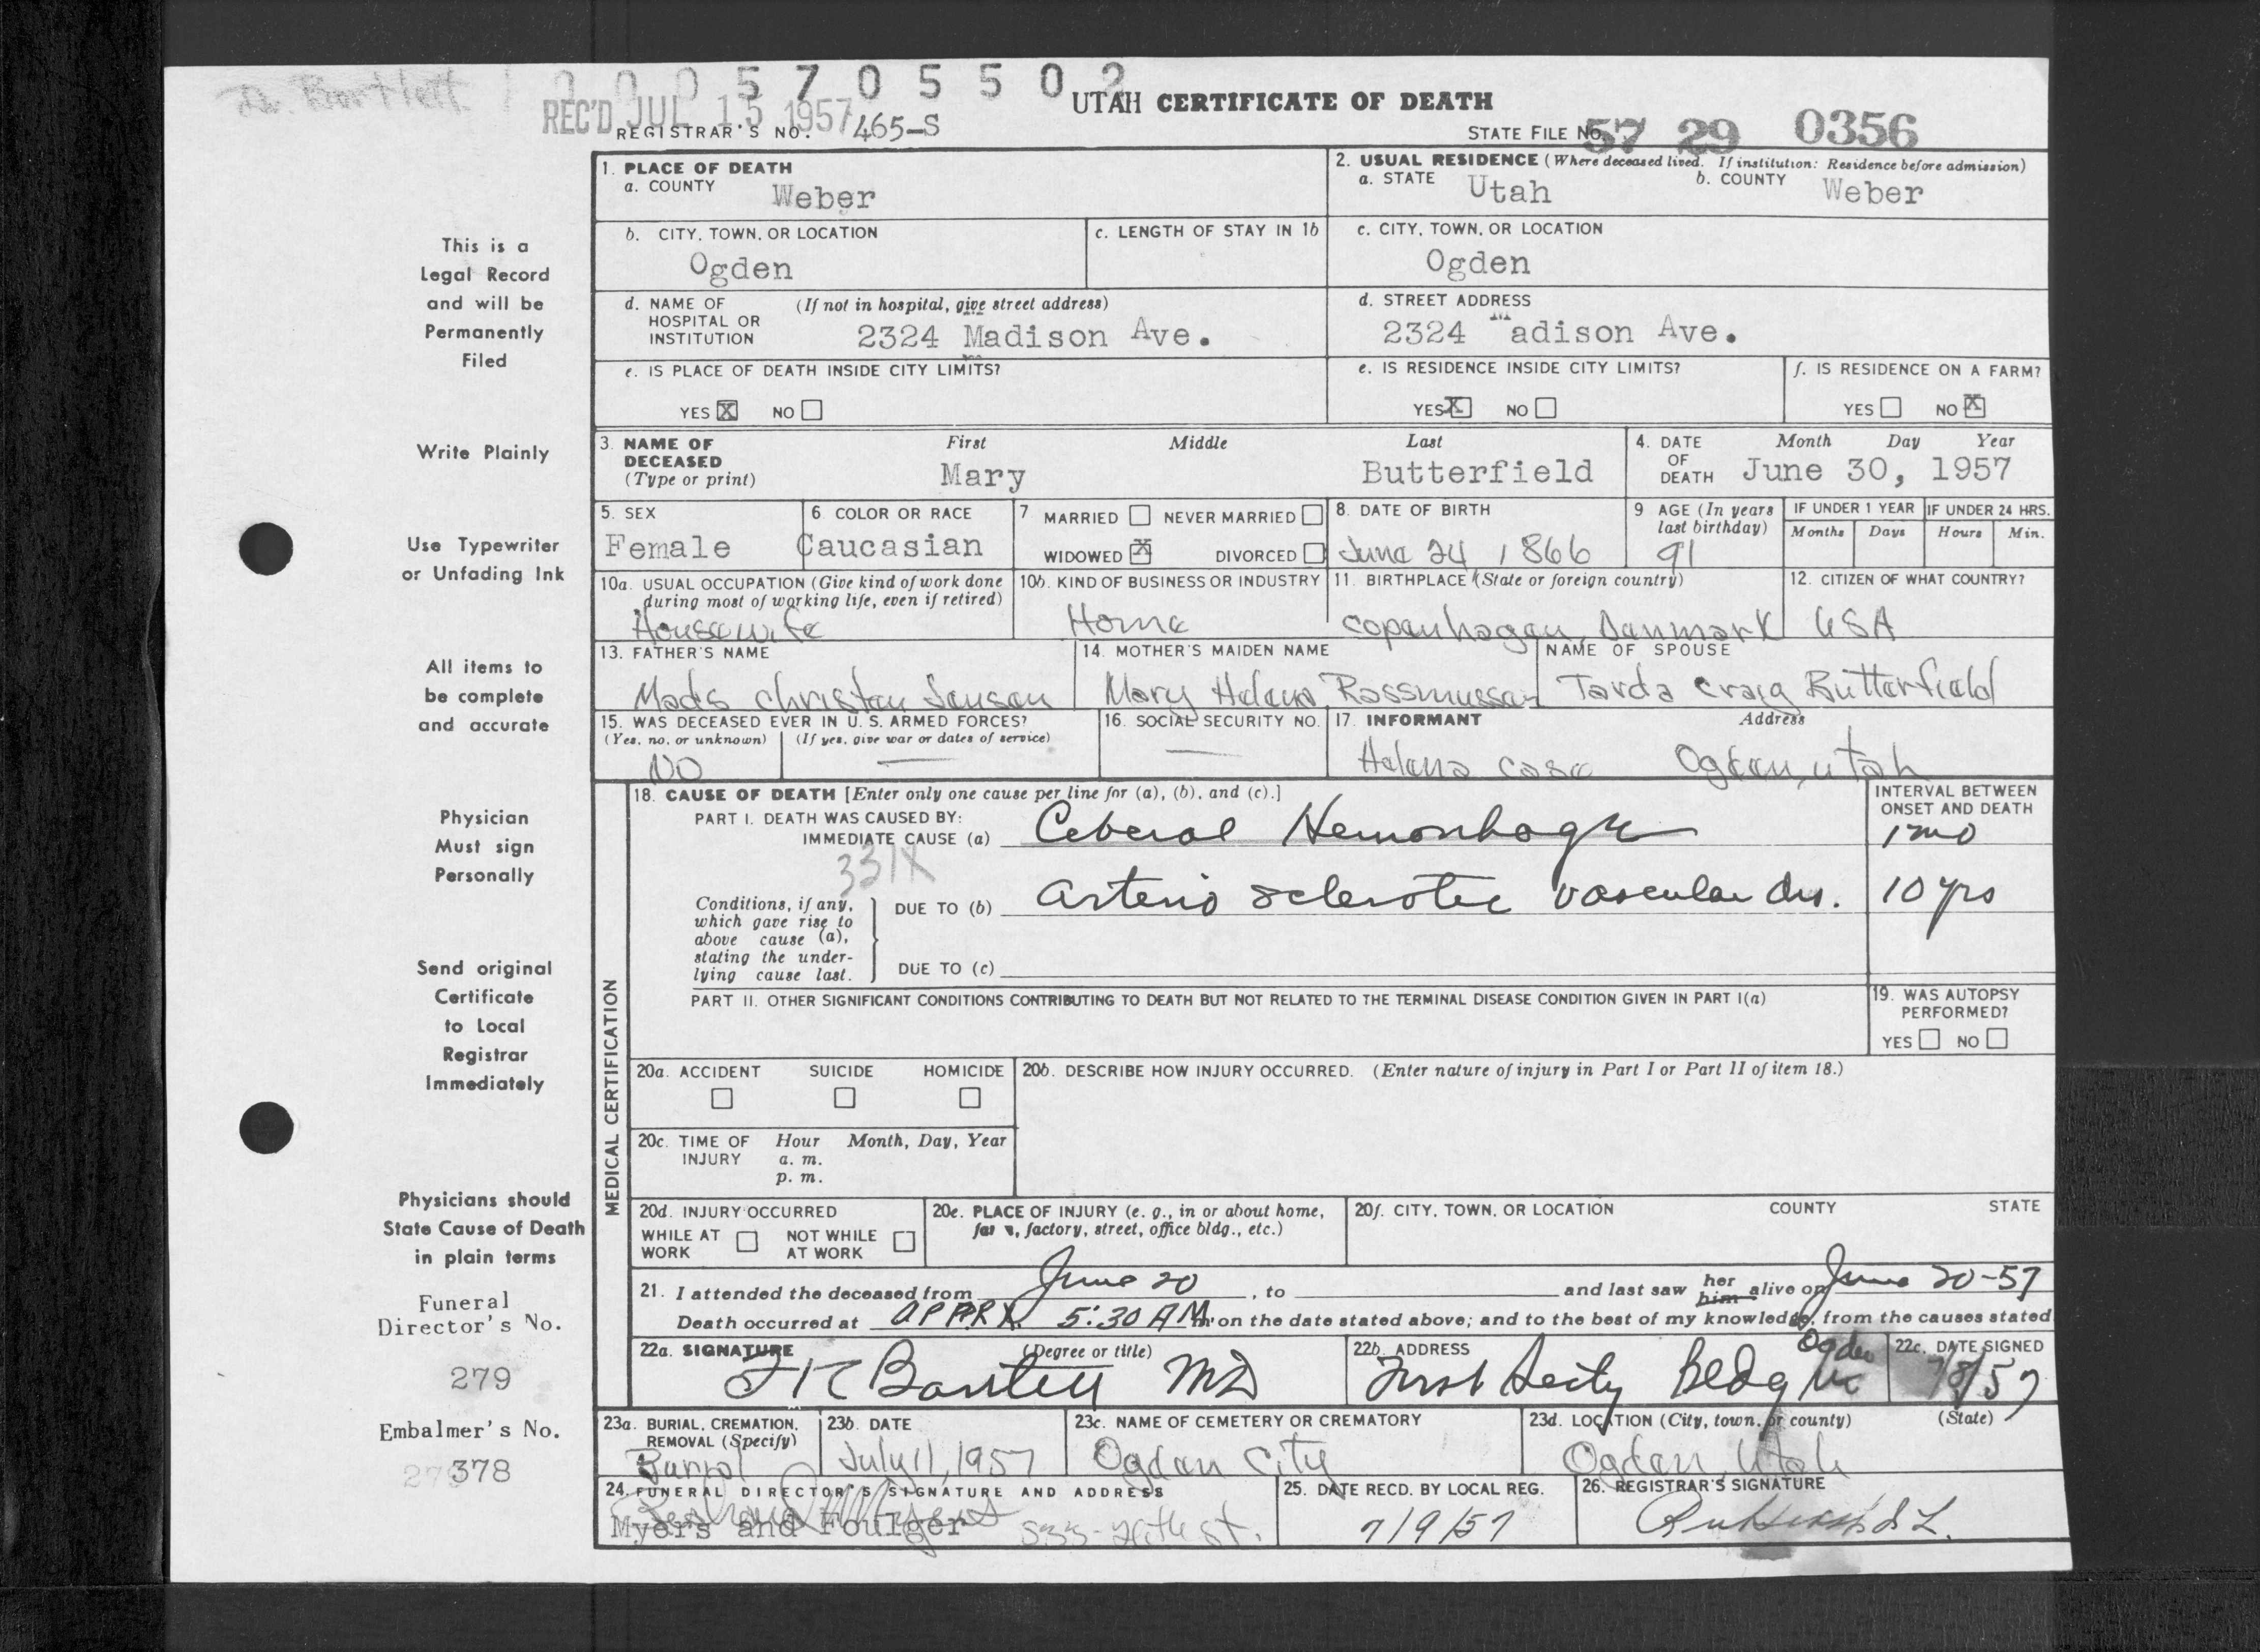 Dr. Bartlett
0005705502
REC'D JUL 15 1957
UTAH CERTIFICATE OF DEATH
REGISTRAR'S NO. 465-S
STATE FILE NO. 57 29 0356
This is a
Legal Record
and will be
Permanently
Filed
Write Plainly
Use Typewriter
or Unfading Ink
All items to
be complete
and accurate
Physician
Must sign
Personally
Send original
Certificate
to Local
Registrar
Immediately
Physicians should
State Cause of Death
in plain terms
Funeral
Director's No.
279
Embalmer's No.
378
1. PLACE OF DEATH
a. COUNTY Weber
2. USUAL RESIDENCE (Where deceased lived. If institution: Residence before admission)
a. STATE Utah b. COUNTY Weber
b. CITY, TOWN, OR LOCATION
Ogden
c. LENGTH OF STAY IN 1b
c. CITY, TOWN, OR LOCATION
Ogden
d. NAME OF HOSPITAL OR INSTITUTION (If not in hospital, give street address)
2324 Madison Ave.
d. STREET ADDRESS
2324 Madison Ave.
e. IS PLACE OF DEATH INSIDE CITY LIMITS?
YES X NO
e. IS RESIDENCE INSIDE CITY LIMITS?
YES X NO
f. IS RESIDENCE ON A FARM?
YES NO X
3. NAME OF DECEASED (Type or print)
First Middle Last
Mary Butterfield
4. DATE OF DEATH Month Day Year
June 30, 1957
5. SEX
Female
6. COLOR OR RACE
Caucasian
7 MARRIED NEVER MARRIED
WIDOWED X DIVORCED
8. DATE OF BIRTH
June 24, 1866
9 AGE (In years last birthday)
91
IF UNDER 1 YEAR
Months Days
IF UNDER 24 HRS.
Hours Min.
10a. USUAL OCCUPATION (Give kind of work done during most of working life, even if retired)
Housewife
10b. KIND OF BUSINESS OR INDUSTRY
Home
11. BIRTHPLACE (State or foreign country)
Copenhagen, Denmark
12. CITIZEN OF WHAT COUNTRY?
USA
13. FATHER'S NAME
Mads Christen Jensen
14. MOTHER'S MAIDEN NAME
Mary Helena Rassmussen
NAME OF SPOUSE
Tarda Craig Butterfield
15. WAS DECEASED EVER IN U. S. ARMED FORCES?
(Yes, no, or unknown) (If yes, give war or dates of service)
NO —
16. SOCIAL SECURITY NO.
—
17. INFORMANT Address
Helena Case Ogden, Utah
MEDICAL CERTIFICATION
18. CAUSE OF DEATH [Enter only one cause per line for (a), (b), and (c).]
INTERVAL BETWEEN ONSET AND DEATH
PART I. DEATH WAS CAUSED BY:
IMMEDIATE CAUSE (a) Ceberal Hemorrhage 1 mo
331X
Conditions, if any, which gave rise to above cause (a), stating the underlying cause last.
DUE TO (b) Arterio sclerotic vascular dis. 10 yrs
DUE TO (c)
PART II. OTHER SIGNIFICANT CONDITIONS CONTRIBUTING TO DEATH BUT NOT RELATED TO THE TERMINAL DISEASE CONDITION GIVEN IN PART I(a)
19. WAS AUTOPSY PERFORMED?
YES NO
20a. ACCIDENT SUICIDE HOMICIDE
20b. DESCRIBE HOW INJURY OCCURRED. (Enter nature of injury in Part I or Part II of item 18.)
20c. TIME OF INJURY Hour Month, Day, Year
a. m.
p. m.
20d. INJURY OCCURRED
WHILE AT WORK NOT WHILE AT WORK
20e. PLACE OF INJURY (e. g., in or about home, farm, factory, street, office bldg., etc.)
20f. CITY, TOWN, OR LOCATION COUNTY STATE
21. I attended the deceased from June 20, to and last saw her him alive on June 20-57
Death occurred at APPRX. 5:30 AM m on the date stated above; and to the best of my knowledge, from the causes stated
22a. SIGNATURE (Degree or title)
F K Bartlett MD
22b. ADDRESS
First Secty Bldg Ogden
22c. DATE SIGNED
7/8/57
23a. BURIAL, CREMATION, REMOVAL (Specify)
Burial
23b. DATE
July 11, 1957
23c. NAME OF CEMETERY OR CREMATORY
Ogden City
23d. LOCATION (City, town, or county) (State)
Ogden, Utah
24. FUNERAL DIRECTOR'S SIGNATURE AND ADDRESS
Myers and Foulger 533-26th st.
25. DATE RECD. BY LOCAL REG.
7/9/57
26. REGISTRAR'S SIGNATURE